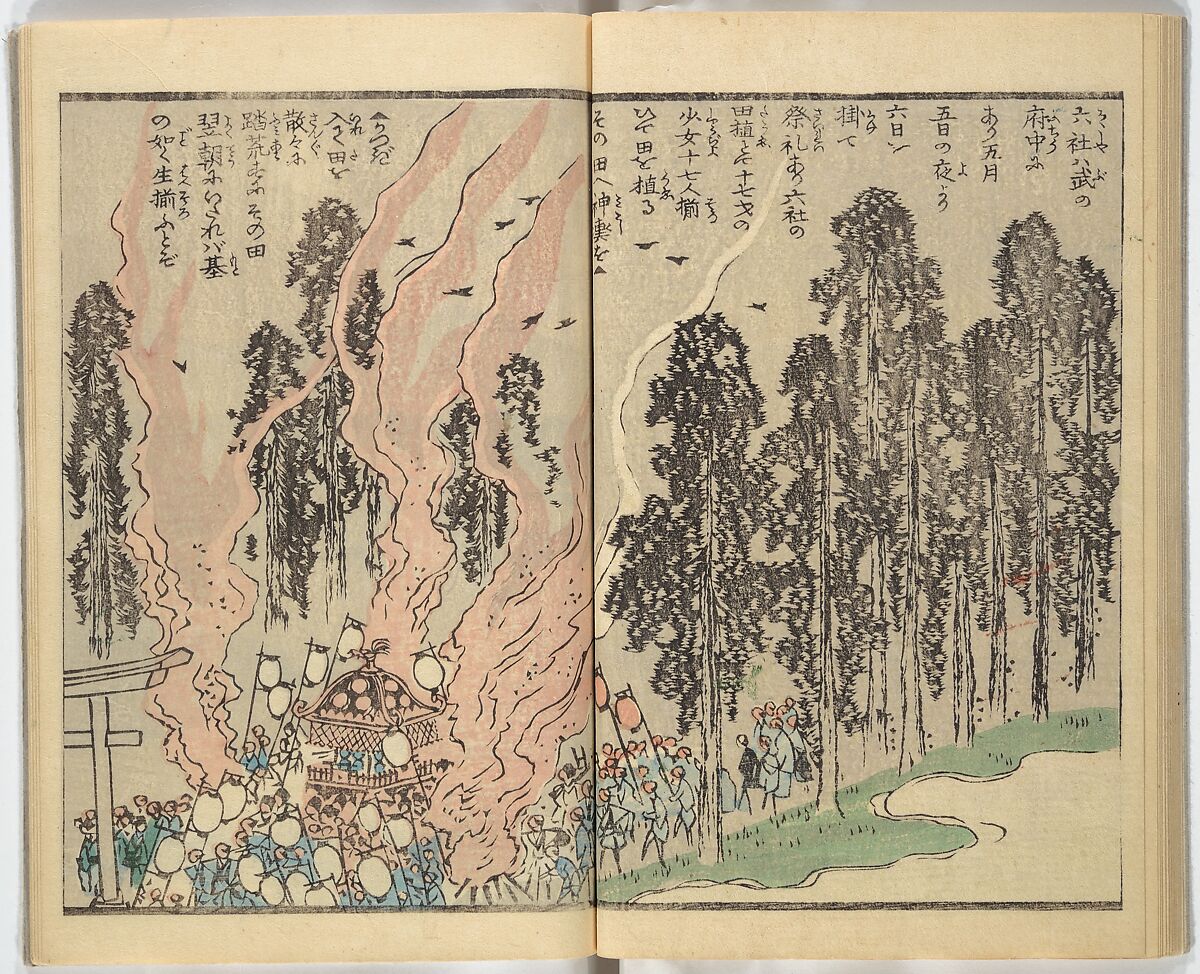 六社ハ武の
府中に
あり五月
五日の夜より
六日に
掛て
祭礼あり六社の
田植とて十七才の
少女十七人揃
ひて田を植る
その田へ神輿を
かつぎ
入て田を
散々に
踏荒すにその田
翌朝にいたれバ基
の如く生揃ふとぞ